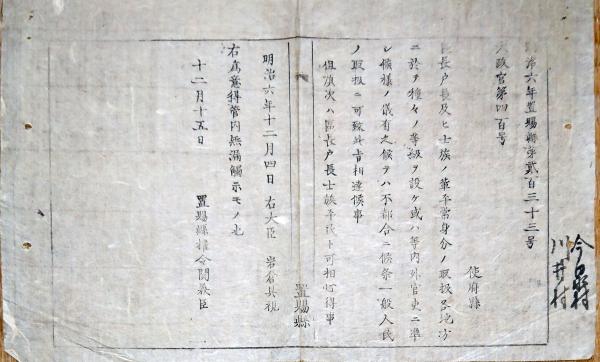 明治六年置賜縣第貳百三十三号
太政官第四百号
使府縣
區長戸長及ヒ士族ノ輩平常身分ノ取扱各地方
ニ於テ種々ノ等級ヲ設ケ或ハ等内外官吏ニ準
シ候様ノ儀有之候テハ不都合ニ候条一般人民
ノ取扱ニ可致此旨相達候事
但順次ハ區長戸長士族平民ト可相心得事
明治六年十二月四日 右大臣 岩倉具視
置賜縣
右為意得管内無漏觸示モノ也
十二月十五日
置賜縣権令関義臣
川井村